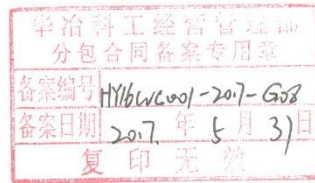 华冶科工经营管理部
分包合同备案专用章
备案编号 HY16WG001-2017-G08
备案日期 2017. 年 5 月 31日
复印无效